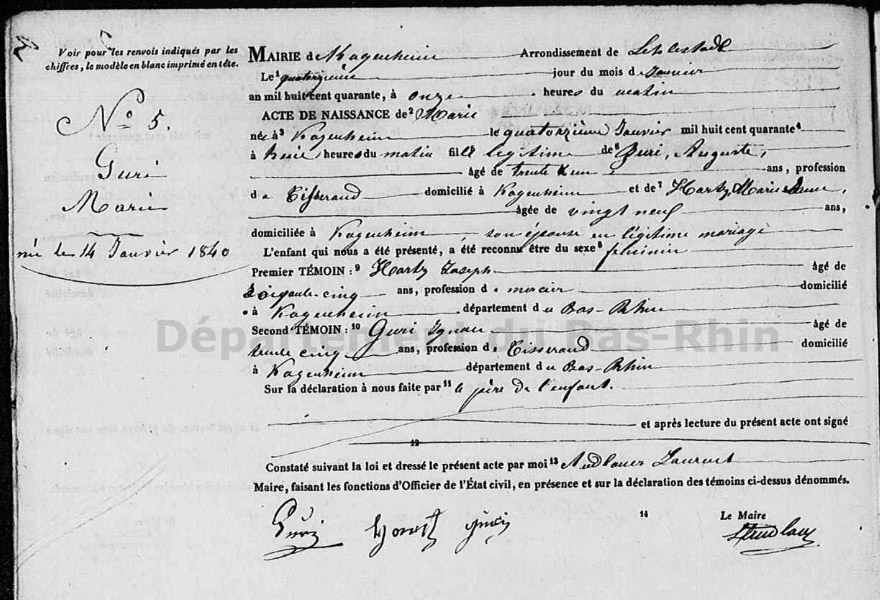 Voir pour les renvois indiqués par les
chiffres, le modèle en blanc imprimé en tête.
N° 5.
Guri
Marie
née le 14 Janvier 1840
MAIRIE de Kogenheim Arrondissement de Schlestadt
Le 1 quatorzième jour du mois de Janvier
an mil huit cent quarante, à onze heures du matin
ACTE DE NAISSANCE de 2 Marie
née à 3 Kogenheim le quatorzième Janvier mil huit cent quarante 4
à huit heures du matin fille légitime de 6 Guri, Auguste,
âgé de trente un ans, profession
de Tisserand domicilié à Kogenheim et de 7 Harty Marie Anne,
âgée de vingt neuf ans,
domiciliée à Kogenheim, son épouse en légitime mariage
L'enfant qui nous a été présenté, a été reconnu être du sexe 8 féminin
Premier TÉMOIN : 9 Harty Joseph âgé de
soixante-cinq ans, profession de domicilié
à Kogenheim département du Bas-Rhin
Second TÉMOIN : 10 Guri Ignace âgé de
trente cinq ans, profession de Tisserand domicilié
à Kogenheim département du Bas-Rhin
Département du Bas-Rhin
Sur la déclaration à nous faite par 11 le père de l'enfant.
et après lecture du présent acte ont signé
12
Constaté suivant la loi et dressé le présent acte par moi 13 Andlauer Laurent
Maire, faisant les fonctions d'Officier de l'État civil, en présence et sur la déclaration des témoins ci-dessus dénommés.
14 Le Maire
Guri Andlauer